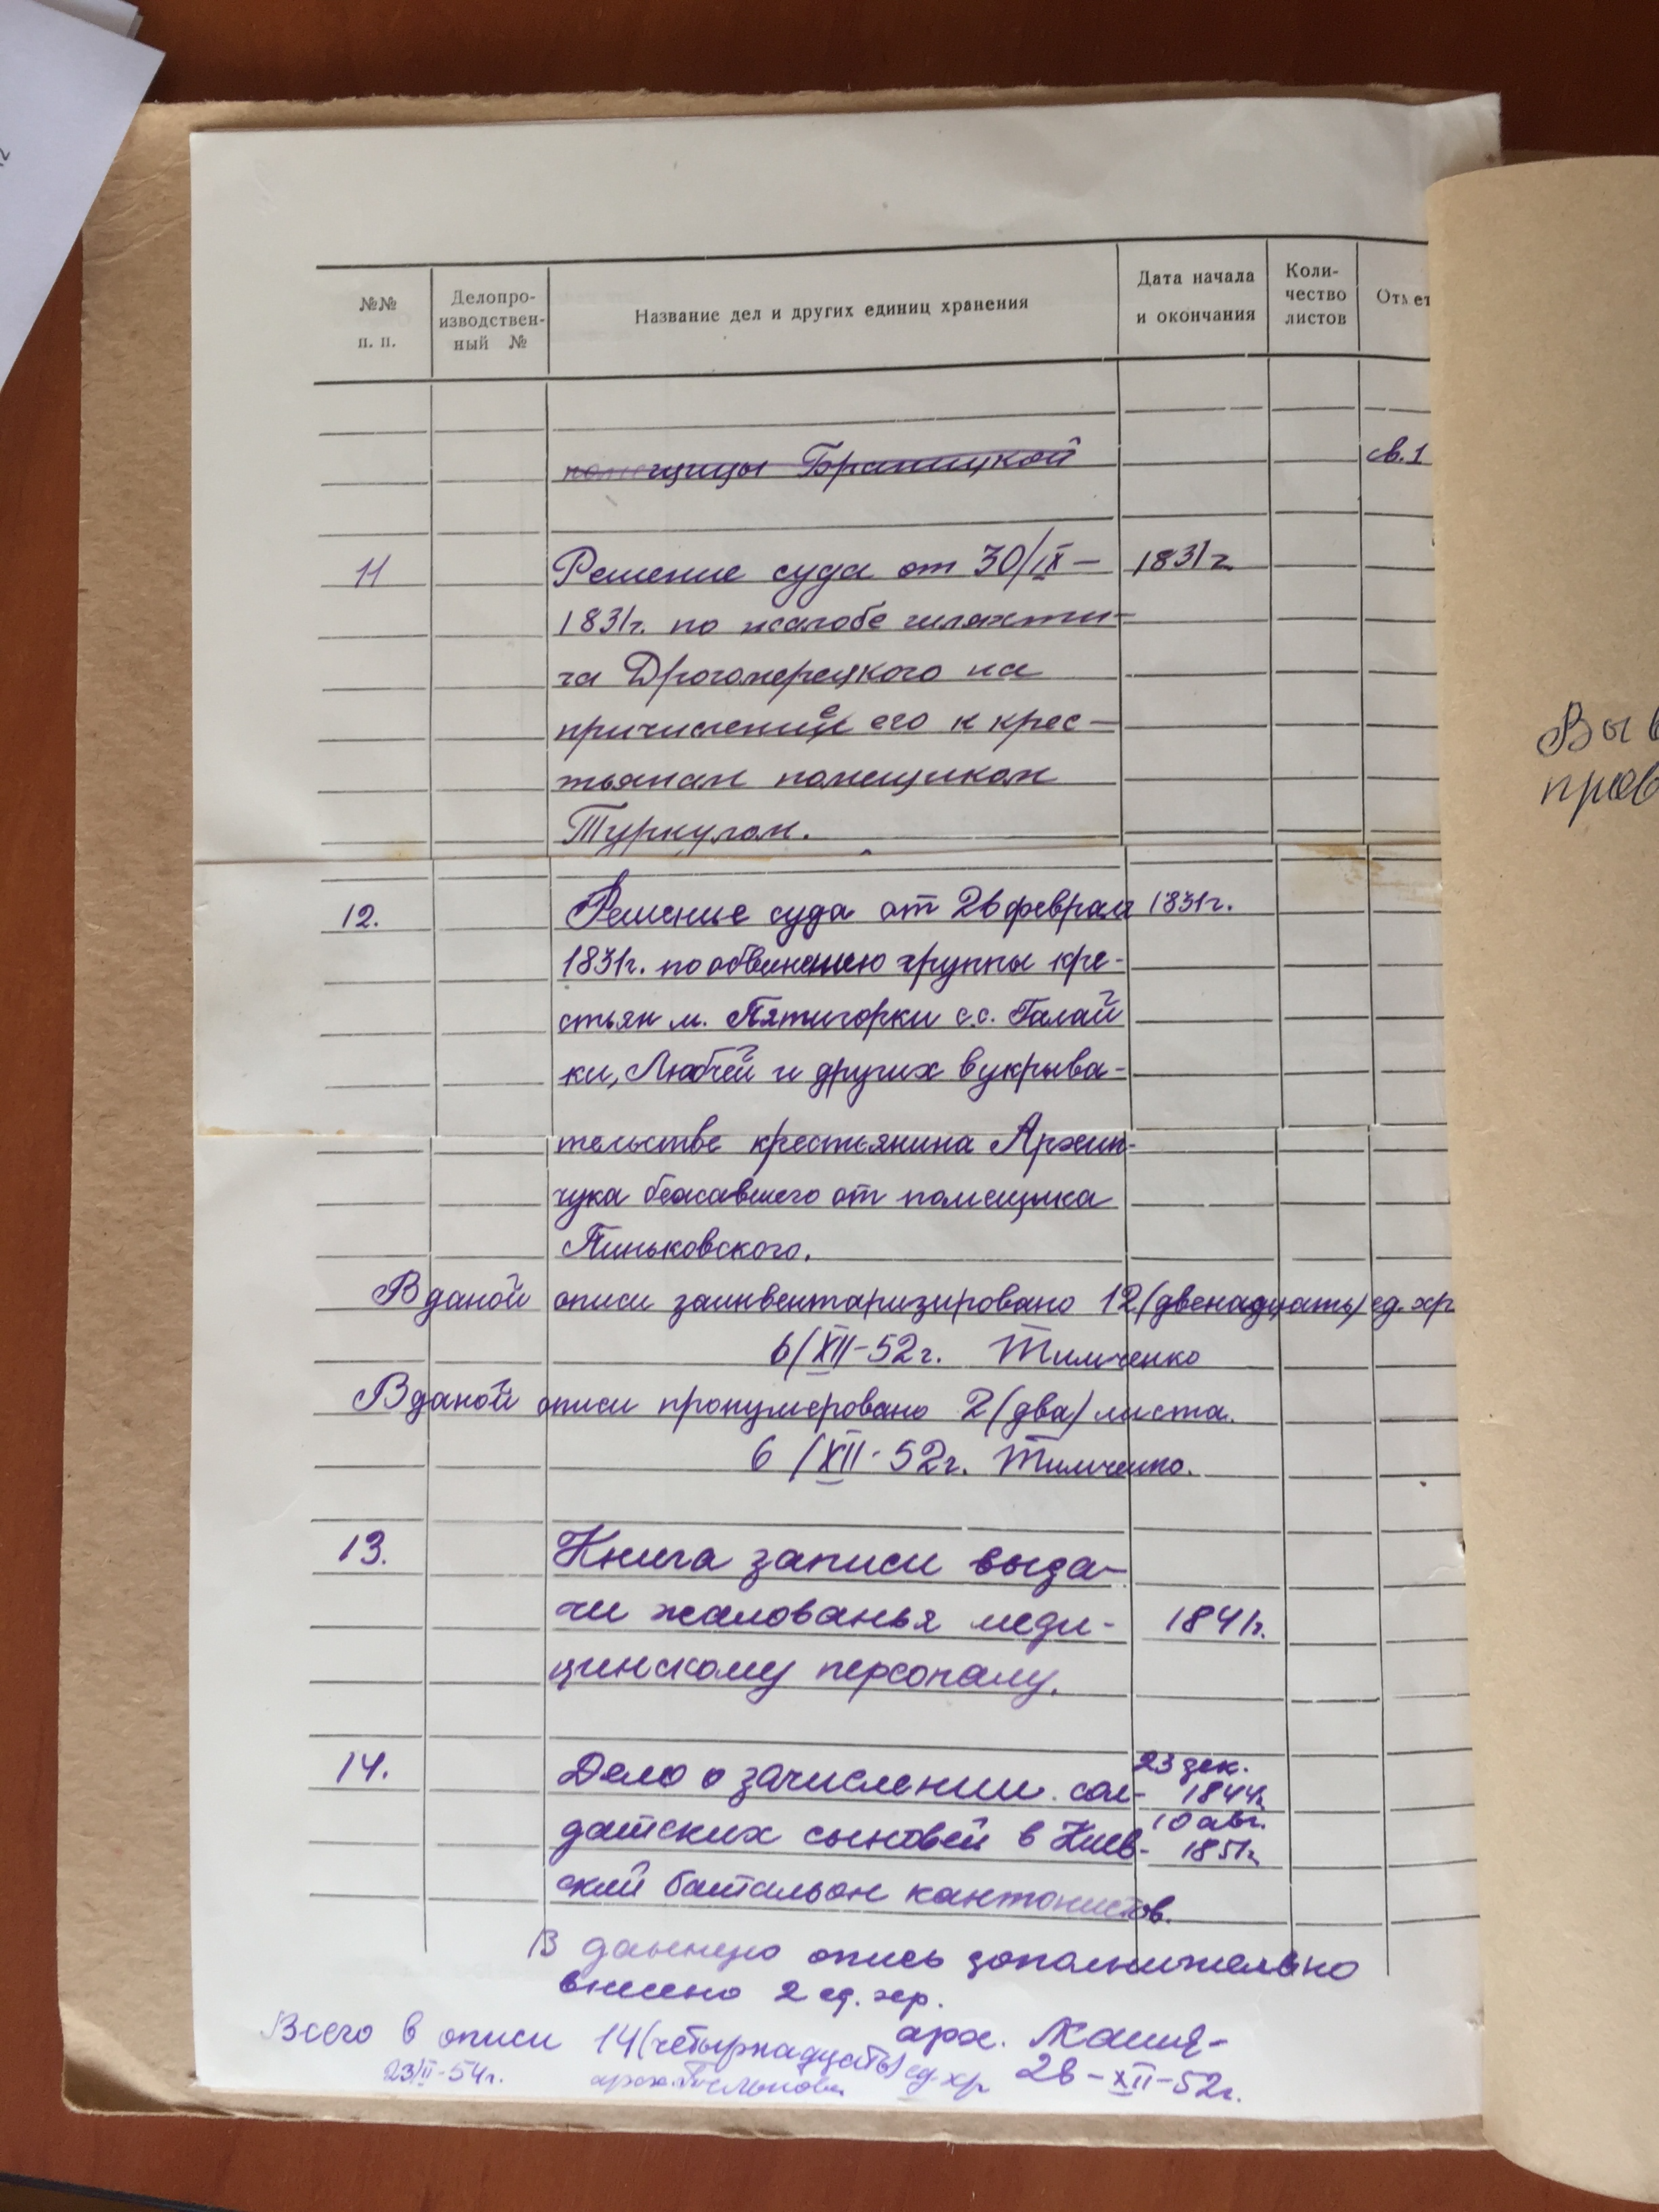 №№ п. п.
Делопро-
изводствен-
ный №
Название дел и других единиц хранения
Дата начала
и окончания
Коли-
чество
листов
Отмет
помещицы Браницкой
св. 1
11 Решение суда от 30/IX – 1831г.
1831г. по жалобе шляхти-
ча Дрогомерецкого на
причисление его к крес-
тьянам помещиком
Туркулом.
12. Решение суда от 26 феврал 1831г.
1831г. по обвинению группы кре-
стьян м. Пятигорки с.с. Галай
ки, Любчей и других в укрыва-
тельстве крестьянина Архип-
чука бежавшего от помещика
Пиньковского.
В даной описи заинвентаризировано 12 (двенадцать) ед. хр
6/XII-52г. Тимченко
В даной описи пронумеровано 2 (два) листа.
6/XII-52г. Тимченко.
13. Книга записи выда-
чи жалованья меди- 1841г.
цинскому персоналу.
14. Дело о зачислении сол-
датских сыновей в Киев-
ский батальон кантонистов.
23 дек.
1844г
10 авг.
1851г
В данную опись дополнительно
внесено 2 ед. хр.
арх.
26-XII-52г.
Всего в описи 14 (четырнадцать) ед. хр
23/II-54г. арх.
Вы в
пров